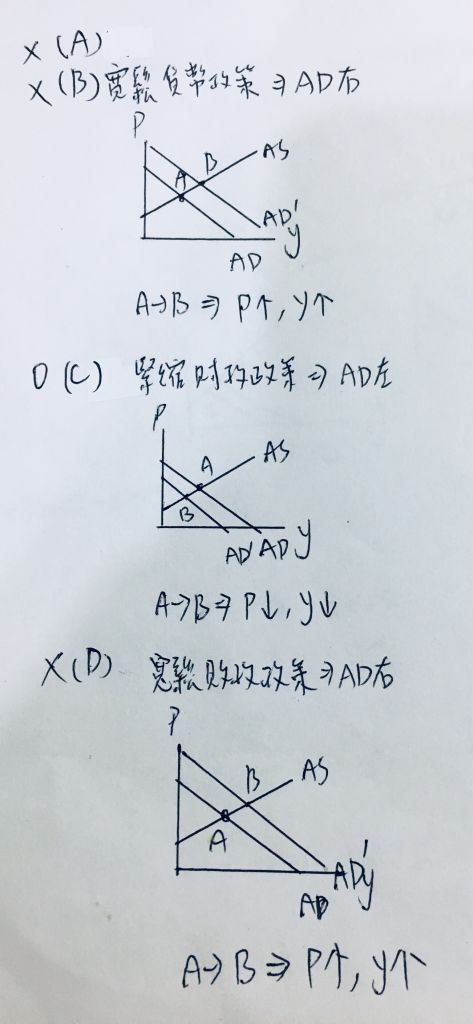 X (A)
X (B) 寬鬆貨幣政策 ⇒ AD右
P
B
AS
A
AD'
y
AD
A→B ⇒ P↑, y↑
O (C) 緊縮財政政策 ⇒ AD左
P
A
AS
B
AD' AD y
A→B ⇒ P↓, y↓
X (D) 寬鬆財政政策 ⇒ AD右
P
B
AS
A
AD' y
AD
A→B ⇒ P↑, y↑